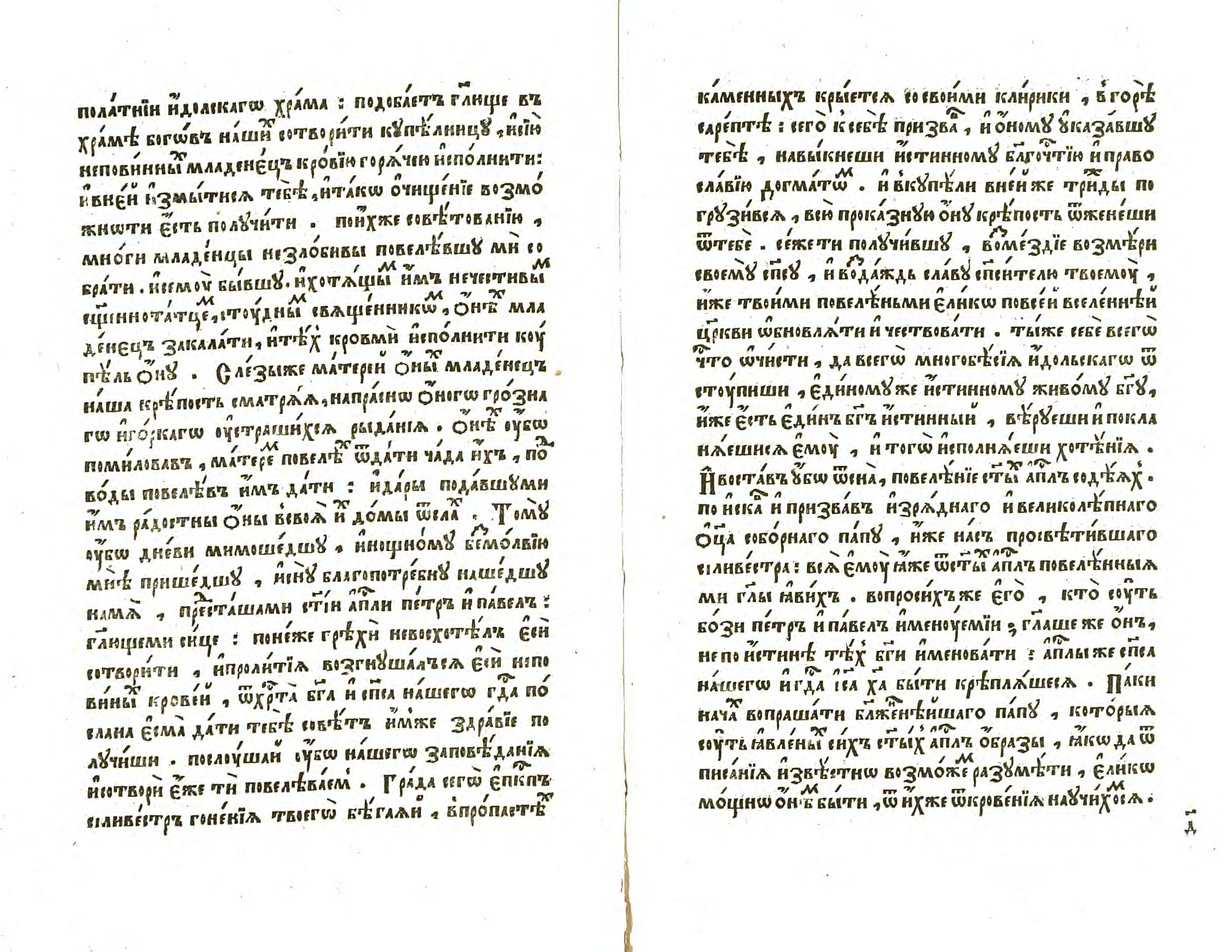 пола́тнїи и҆́долскагѡ хра́ма : подоба́етъ гл҃юще въ
хра́мѣ богѡ́въ на́ши сотвори́ти купѣ́лницꙋ , и҆сїю
непови́нны младене́цъ кро́вїю горѧ́чею и҆спо́лнити :
и҆вне́й и҆змы́тисѧ тебѣ̀ , и҆та́кѡ ѻ҆чище́нїе возмо́
жнѡти є҆́сть полꙋчи́ти . пои҆́хже совѣ́тованїю ,
мно́ги младе́нцы незло́бивы повелѣ́вшꙋ мѝ со
бра́ти . и҆семоу̀ бы́вшꙋ . и҆хотѧ́щы и҆̀мъ нечести́вы
сщ҃іннота́тце , стоу́дны свѧще́нникѡ , ѻ҆́нѣ мла
де́нецъ закала́ти , и҆тѣ́х кровмѝ и҆спо́лнити коу
пѣ́ль ѻ҆́нꙋ . Сле́зыже ма́терей ѻ҆́ны младе́нецъ
на́ша крѣ́пость сматрѧ́ѧ , напра́снѡ ѻ҆́ногѡ гро́зна
гѡ и҆го́ркагѡ оу҆страши́хсѧ рыда́нїѧ . ѻ҆́нѣ оу҆́бѡ
поми́ловавъ , ма́тере повелѣ́ ѿда́ти ча́да и҆́хъ , по
во́ды повелѣ́въ и҆̀мъ да́ти : и҆да́ры пода́вшꙋми
и҆̀мъ ра́достны ѻ҆́ны всвоѧ̀ и҆́ до́мы ѿсла̀ . Томꙋ̀
оу҆́бѡ дне́ви мимоше́дшꙋ , и҆но́щномꙋ безмо́лвїю
мнѣ̀ прише́дшꙋ , и҆снꙋ̀ благопотре́бнꙋ наше́дшꙋ
намѧ̀ , пре́сташами ст҃і́и а҆пли пе́тръ и҆па́велъ :
гл҃ющеми си́це : поне́же грѣхѝ невосхотѣ́лъ є҆сѝ
сотвори́ти , и҆проли́тїѧ возгнꙋша́лъсѧ є҆сѝ непо
ви́ны кро́вей , ѿхр҃та̀ бг҃а и҆ сп҃са на́шегѡ гд҃а по́
слана є҆сма̀ да́ти тебѣ̀ совѣ́тъ и҆́мже здра́вїе по
лꙋ́чиши . послоу́шай оу҆́бѡ на́шегѡ заповѣ́данїѧ
и҆сотворѝ є҆́же тѝ повелѣва́ем . Гра́да сегѡ̀ є҆пкпъ
силиве́стръ гоне́нїѧ твоегѡ̀ бѣ́гаѧй , впро́пастѣ
ка́менныхъ кры́етсѧ сосвои́ми кли́рики , вгорѣ̀
саре́птѣ : сего̀ ксебѣ̀ призва̀ , и҆ ѻ҆́номꙋ ᲂу҆каза́вшꙋ
тебѣ̀ , навы́кнеши и҆́стинномꙋ бл҃гоч́тїю и҆право
сла́вїю догма́тѡ . и҆ вкꙋпѣ́ли вне́йже три́ды по
грꙋзи́всѧ , всю̀ прока́знꙋю ѻ҆́нꙋ крѣ́пость ѿжене́ши
ѿтебѐ . се́жети полꙋчи́вшꙋ , воме́здїе возмѣ́ри
своемꙋ̀ сп҃сꙋ , и҆ во́даждь сла́вꙋ сп҃си́телю твоемоу̀ ,
и҆́же твои́ми повелѣ́ньми є҆ли́кѡ повсе́й вселе́ннѣй
цр҃кви ѡ҆бновлѧ́ти и҆ че́ствовати . ты́же себѐ всегѡ̀
что̀ ѡ҆чи́сти , да всегѡ̀ многобѣ́сїѧ и҆́дольскагѡ ѿ
стоупиши , є҆ди́номꙋже и҆́стинномꙋ живо́мꙋ бг҃ꙋ ,
и҆́же є҆́сть є҆ди́нъ бг҃ъ и҆́стинный , вѣ́рꙋеши и҆покла
нѧ́ешисѧ є҆моу̀ , и҆ тогѡ̀ и҆сполнѧ́еши хотѣ́нїѧ .
И҆воста́въ ᲂу҆́бѡ ѿсна̀ , повелѣ́нїе ст҃ы а҆пл҃ъ содѣ́ѧх .
поиска̀ и҆ призва́въ и҆зрѧ́днаго и҆великолѣ́пнаго
ѻ҆ц҃а собо́рнаго па́пꙋ , и҆́же на́съ просвѣти́вшаго
силиве́стра : всѧ̀ є҆моу̀ ꙗ҆́же ѿст҃ы а҆пл҃ъ повелѣ́нныѧ
ми гл҃ы ꙗ҆ви́хъ . вопроси́хъже є҆го̀ , кто̀ соу́ть
бо́зи пе́тръ и҆па́велъ и҆меноу́емїи ; гл҃аше же ѻ҆́нъ ,
не по и҆́стинѣ тѣ́х бг҃и и҆менова́ти : а҆пл҃ы же сп҃са
на́шегѡ и҆ гд҃а і҆са ха бы́ти крѣплѧ́шесѧ . Па́ки
нача̀ вопраша́ти бл҃же́ннѣйшаго па́пꙋ , кото́рыѧ
соу́ть ꙗ҆вле́ны си́хъ ст҃ы́х а҆пл҃ъ ѻ҆́бразы , ꙗ҆́кѡ да ѿ
писа́нїѧ и҆звѣ́стнѡ возмо́же разꙋмѣ́ти , є҆ли́кѡ
мо́щнѡ ѻ҆́нѣ бы́ти , ѿ и҆́хже ѿкрове́нїѧ наꙋчи́хосѧ .
д҃